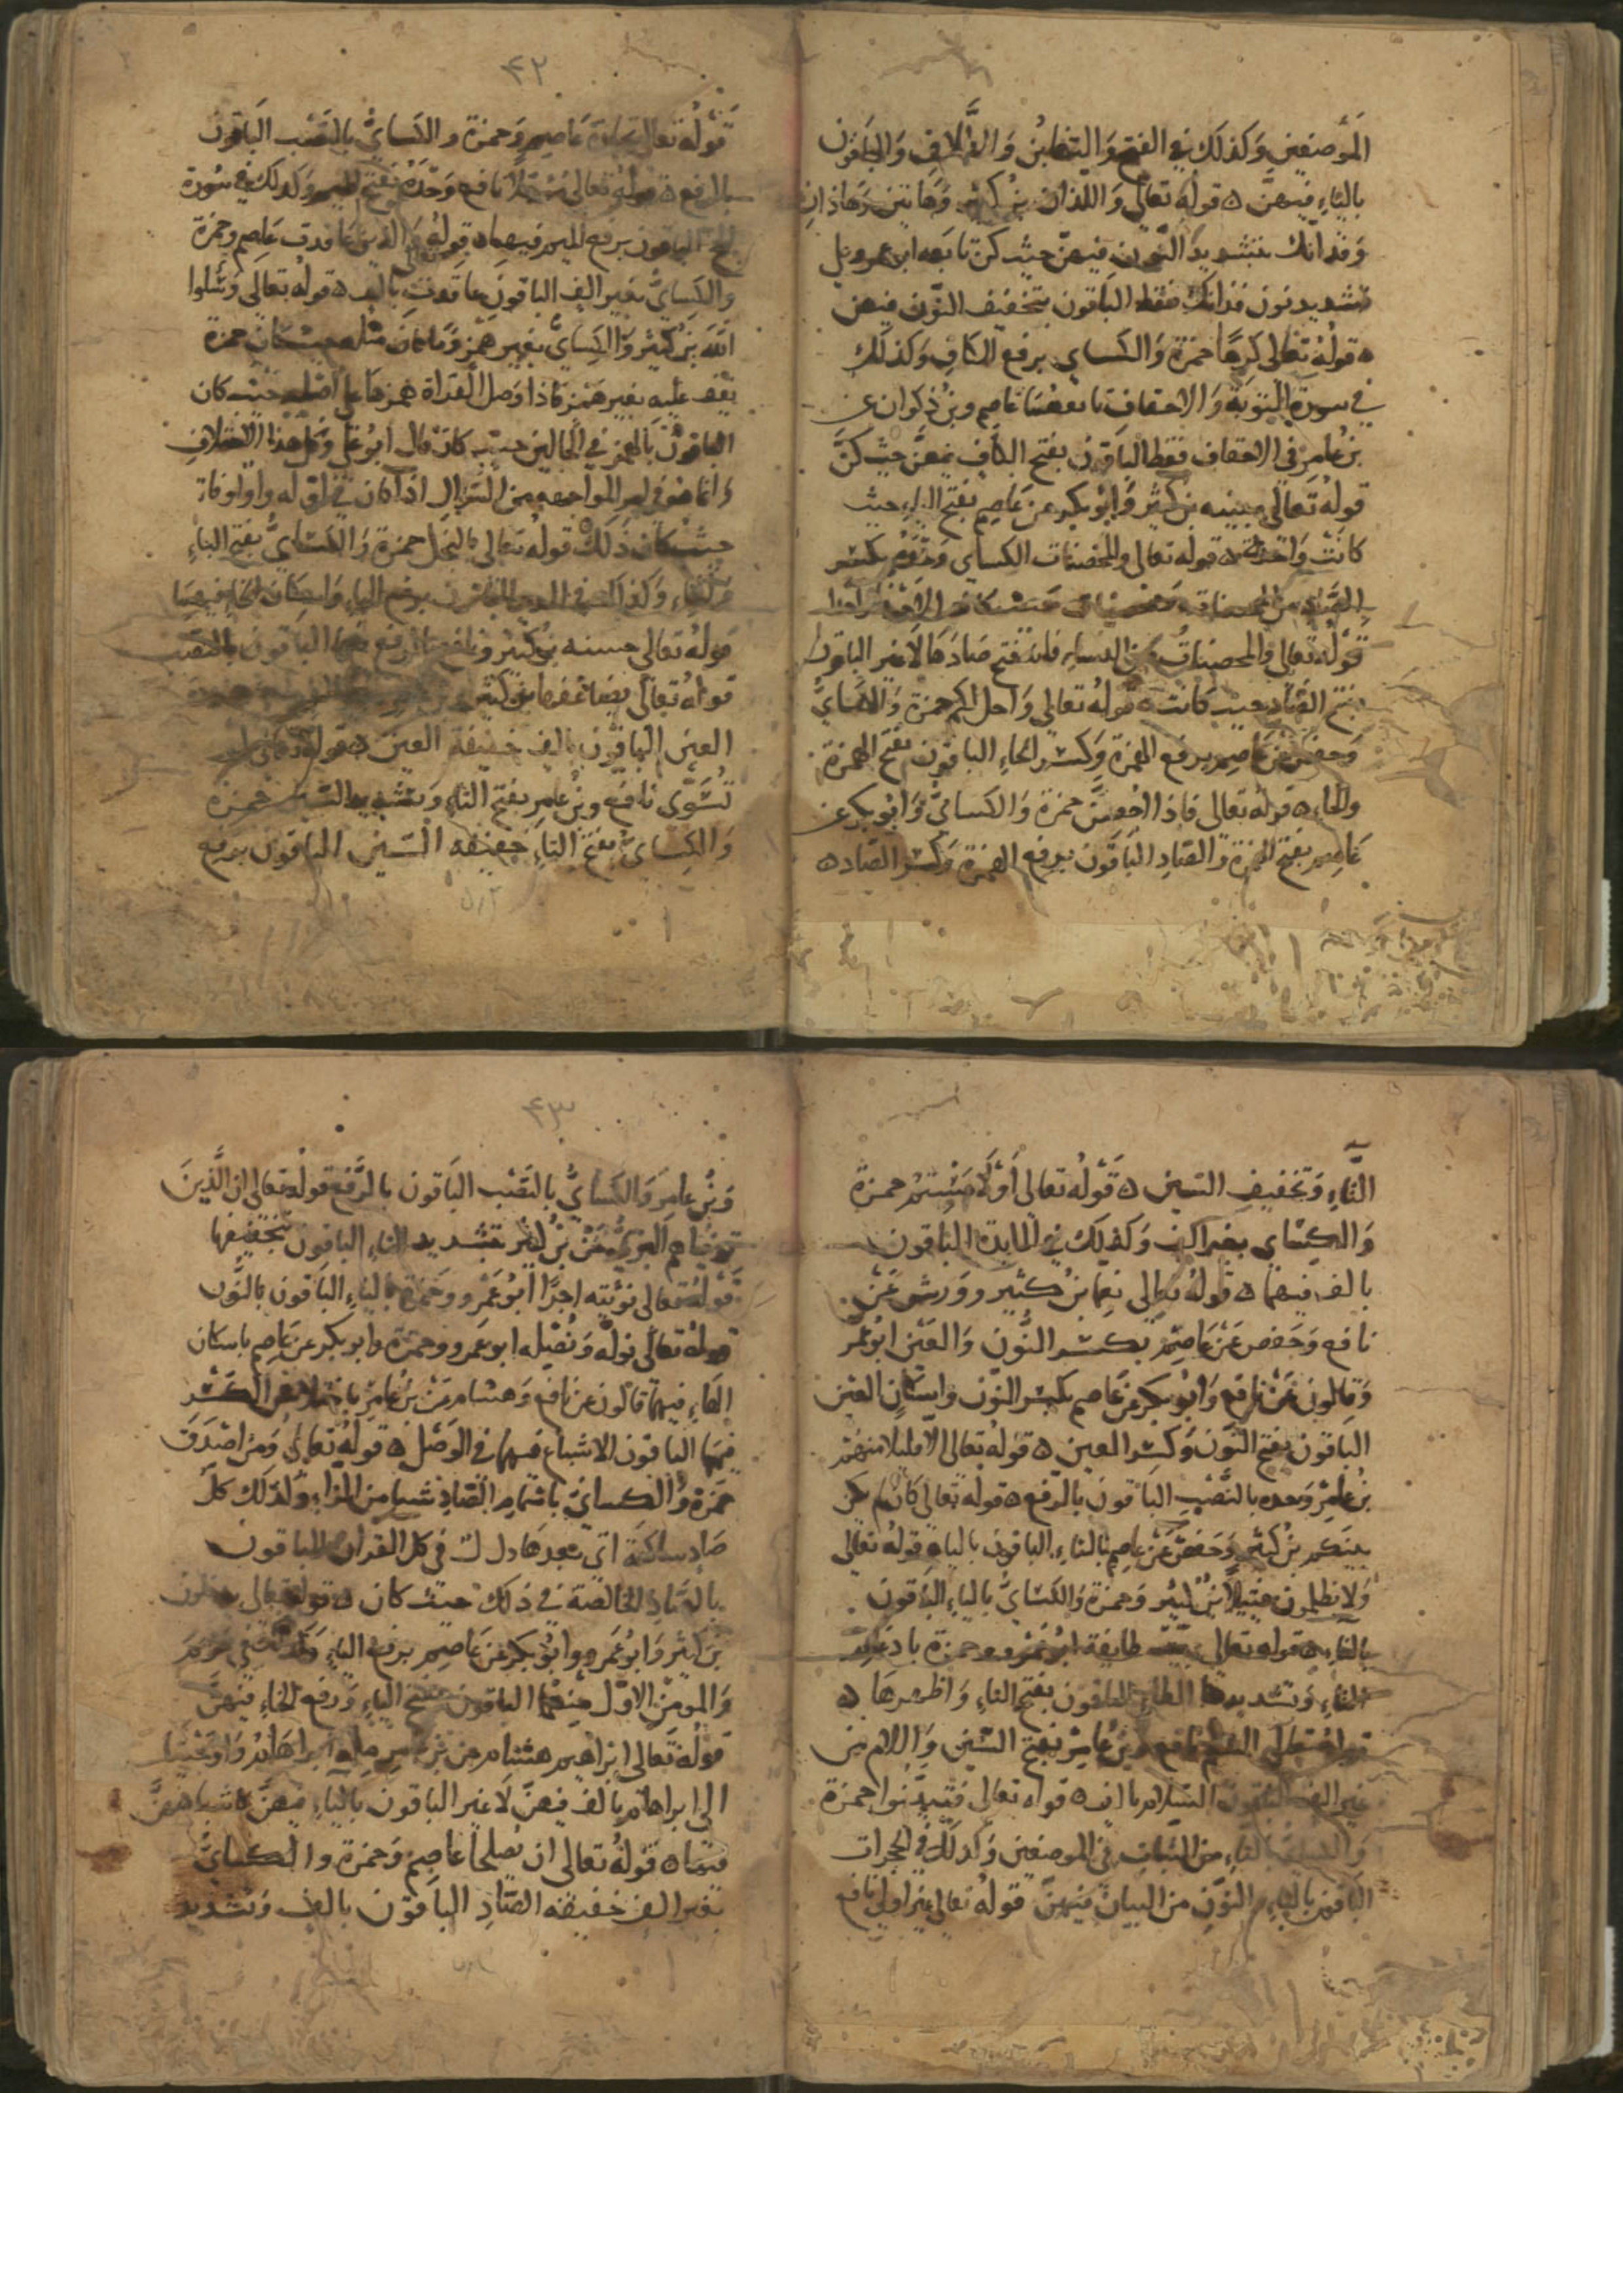 الموضعين وكذلك في الفتح والتغابن والطلاق والباقون
بالياء فيهن ه قوله تعالى واللذان بن كثير وهاتين وهاذان
وفذانك بتشديد النون فيهن حيث كن تابعه ابو عمرو على
تشديد نون فذانك فقط الباقون بتخفيف النون فيهن
ه قوله تعالى كرها حمزة والكساي برفع الكاف وكذلك
في سورة التوبة والاحقاف تابعهما عاصم وبن ذكوان عن
بن عامر في الاحقاف فقط الباقون بفتح الكاف فيهن حيث كن
قوله تعالى مبينه بن كثير وابو بكر عن عاصم بفتح الياء حيث
كانت واحدة ه قوله تعالى والمحصنات الكساي وحده بكسر
الصاد من المحصنات ومحصنات حيث كانت الا
قوله تعالى والمحصنات من النساء فانه فتح صادها لا غير الباقون
بفتح الصاد حيث كانت ه قوله تعالى واحل لكم حمزة والكساي
وحفص عن عاصم برفع الهمزة وكسر الحاء الباقون بفتح الهمزة
والحاء ه قوله تعالى فاذا احصن حمزة والكساي وابو بكر عن
عاصم بفتح الهمزة والصاد الباقون برفع الهمزة وكسر الصاد ه
٤٢
قوله تعالى تجارة عاصم وحمزة والكساي بالنصب الباقون
بالرفع ه قوله تعالى مدخلا نافع وحده بفتح الميم وكذلك في سورة
الحج الباقون برفع الميم فيهما ه قوله تعالى والذين عاقدت عاصم وحمزة
والكساي بغير الف الباقون عاقدت بالف ه قوله تعالى وسلوا
الله بن كثير والكساي بغير همز وما كان مثله حيث كان حمزة
يقف عليه بغير همز فاذا وصل القراة همزها على اصله حيث كان
الباقون بالهمز في الحالين حيث كان قال ابو علي وكل هذا الاختلاف
انما هو في امر المواجهه من السوال اذا كان في اوله واو او فا
حيث كان ذلك ه قوله تعالى بالبخل حمزة والكساي بفتح الباء
والخاء وكذلك في الحديد الباقون برفع الباء واسكان الخاء فيهما
قوله تعالى حسنه بن كثير ونافع بالرفع فيها الباقون بالنصب
قوله تعالى يضاعفها بن كثير
العين الباقون بالف خفيفة العين ه قوله تعالى لو
تسوى نافع وبن عامر بفتح التاء وبتشديد السين حمزة
والكساي بفتح التاء خفيفه السين الباقون برفع
التاء وتخفيف السين ه قوله تعالى او لامستم حمزة
والكساي بغير الف وكذلك في المايدة الباقون
بالف فيهما ه قوله تعالى نعما بن كثير وورش عن
نافع وحفص عن عاصم بكسر النون والعين ابو عمر
وقالون عن نافع وابو بكر عن عاصم بكسر النون واسكان العين
الباقون بفتح النون وكسر العين ه قوله تعالى الا قليلا منهم
بن عامر وحده بالنصب الباقون بالرفع ه قوله تعالى كان لم تكن
بينكم بن كثير وحفص عن عاصم بالتاء الباقون بالياء قوله تعالى
ولا تظلمون فتيلا بن كثير وحمزة والكساي بالياء الباقون
بالتاء ه قوله تعالى بيت طايفة ابو عمرو وحمزة بادغام
التاء وتشديد الطاء الباقون بفتح التاء واظهرها ه
قوله تعالى السلم نافع وبن عامر بفتح السين واللام من
غير الف الباقون السلام بالف ه قوله تعالى فتبينوا حمزة
والكساي بالتاء من الثبات في الموضعين وكذلك في الحجرات
الباقون بالياء والنون من البيان فيهن قوله تعالى غير اولي نافع
٤٣
وبن عامر والكساي بالنصب الباقون بالرفع قوله تعالى ان الذين
توفاهم البزي عن بن كثير بتشديد التاء الباقون بتخفيفها
قوله تعالى نوتيه اجرا ابو عمرو وحمزة بالياء الباقون بالنون
قوله تعالى نوله ونصله ابو عمرو وحمزة وابو بكر عن عاصم باسكان
الهاء فيهما قالون عن نافع وهشام عن بن عامر باختلاس الكسر
فيهما الباقون الاشباع فيهما في الوصل ه قوله تعالى ومن اصدق
حمزة والكساي باشمام الصاد شيا من الزاء وكذلك كل
صاد ساكنة اتى بعدها دال في كل القران الباقون
بالصاد الخالصة في ذلك حيث كان ه قوله تعالى يدخلون
بن كثير وابو عمرو وابو بكر عن عاصم برفع الياء وكذلك في مريم
والمومن الاول منهما الباقون بفتح الياء ورفع الخاء فيهن
قوله تعالى ابراهيم هشام عن بن عامر مله ابراهام واوحينا
الى ابراهام بالف فيهن لا غير الباقون بالياء فيهن
قوله تعالى ان يصلحا عاصم وحمزة والكساي
بغير الف خفيفه الصاد الباقون بالف وتشديد